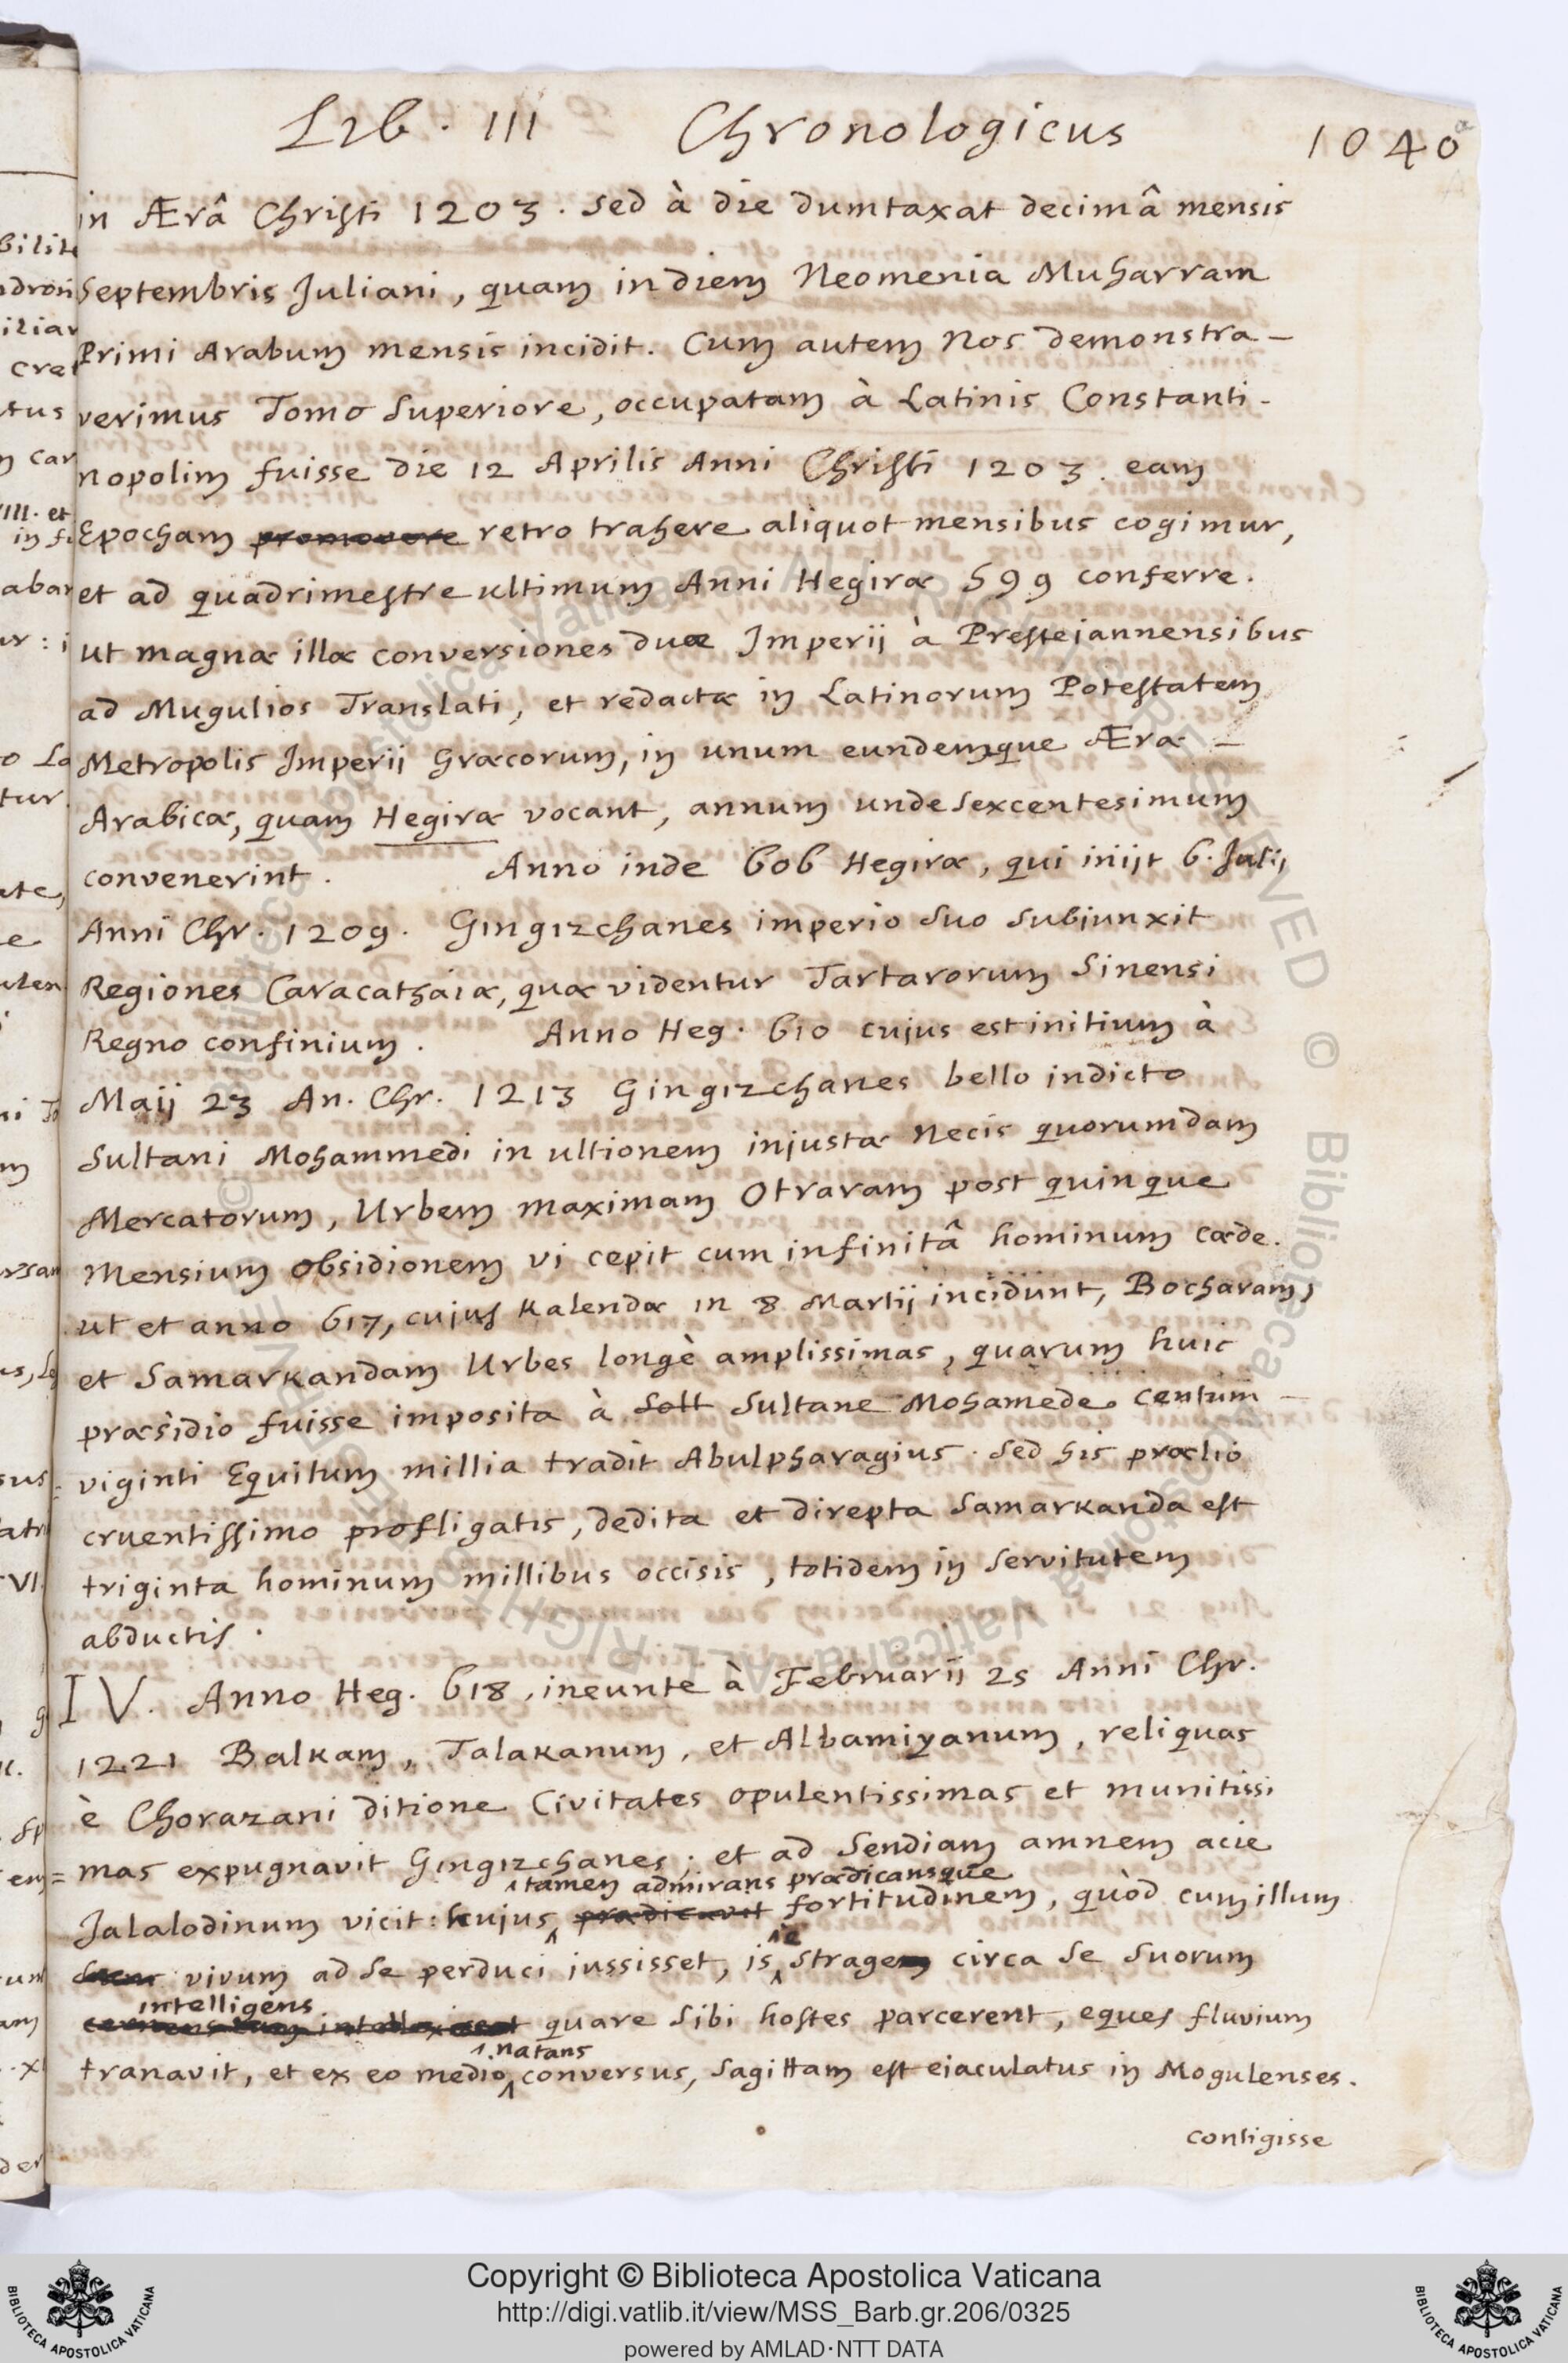 Lib. III Chronologicus 1040
in Ærâ Christi 1203. sed à die dumtaxat decimâ mensis
Septembris Juliani, quam in diem Neomenia Muharram
Primi Arabum mensis incidit. Cum autem Nos demonstra-
verimus Tomo Superiore, occupatam à Latinis Constanti-
nopolim fuisse die 12 Aprilis Anni Christi 1203. eam
Epocham promovere retro trahere aliquot mensibus cogimur,
et ad quadrimestre ultimum Anni Hegiræ 599 conferre.
ut magnæ illæ conversiones duæ Imperij à Prestejannensibus
ad Mugulios Translati, et redactæ in Latinorum Potestatem
Metropolis Imperij Græcorum, in unum eundemque Æræ -
Arabicæ, quam Hegiræ vocant, annum undesexcentesimum
convenerint. Anno inde 606 Hegiræ, qui inijt 6. Julij
Anni Chr. 1209. Gingizchanes imperio suo subjunxit
Regiones Caracathaiæ, quæ videntur Tartarorum Sinensi
Regno confinium. Anno Heg. 610 cujus est initium à
Maij 23 An. Chr. 1213 Gingizchanes bello indicto
Sultani Mohammedi in ultionem injustæ Necis quorumdam
Mercatorum, Urbem maximam Otraram post quinque
Mensium obsidionem vi cepit cum infinitâ hominum cæde.
ut et anno 617, cujus Kalendæ in 8 Martij incidunt, Bocharam,
et Samarkandam Urbes longè amplissimas, quarum huic
præsidio fuisse imposita à Solt Sultane Mohamede centum -
viginti Equitum millia tradit Abulpharagius. Sed his prælio
cruentissimo profligatis, dedita et direpta Samarkanda est
triginta hominum millibus occisis, totidem in Servitutem
abductis.
IV. Anno Heg. 618, ineunte à Februarij 25 Anni Chr.
1221 Balkam, Talakanum, et Albamiyanum, reliquas
è Chorazani ditione Civitates opulentissimas et munitissi
mas expugnavit Gingizchanes; et ad Sendiam amnem acie
tamen admirans prædicansque
Jalalodinum vicit: hujus prædicavit fortitudinem, quòd cum illum
è
vivum ad se perduci jussisset, is strage circa se suorum
intelligens
quare sibi hostes parcerent, eques fluvium
natans
tranavit, et ex eo medio conversus, sagittam est ejaculatus in Mogulenses.
contigisse
Copyright © Biblioteca Apostolica Vaticana
http://digi.vatlib.it/view/MSS_Barb.gr.206/0325
powered by AMLAD·NTT DATA
BIBLIOTECA APOSTOLICA VATICANA
BIBLIOTECA APOSTOLICA VATICANA